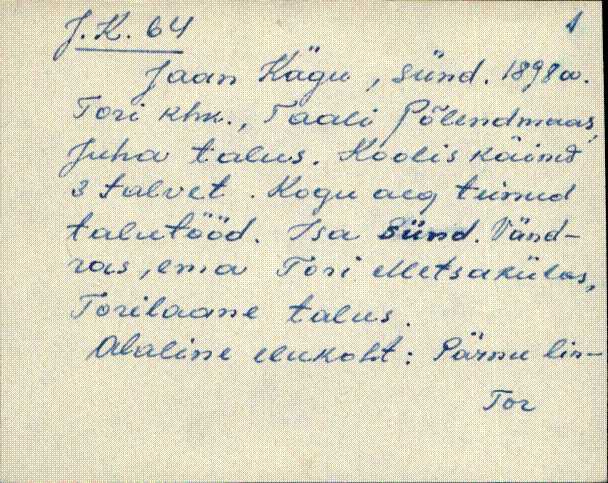 J. K. 64 1
Jaan Kägu, sünd. 1898 a.
Tori khk., Taali Põlendmaas,
Juha talus. Koolis käind
3 talvet. Kogu aeg teinud
talutööd. Isa sünd. Vänd-
ras, ema Tori Metsakülas,
Torilaane talus.
Alaline elukoht: Pärnu lin-
Tor